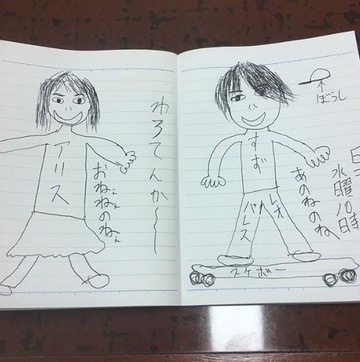 わろてんか〜
アリス
おねねのね
ぼうし
すず
あのねのね
レオ
パレス
スケボー
水曜10時